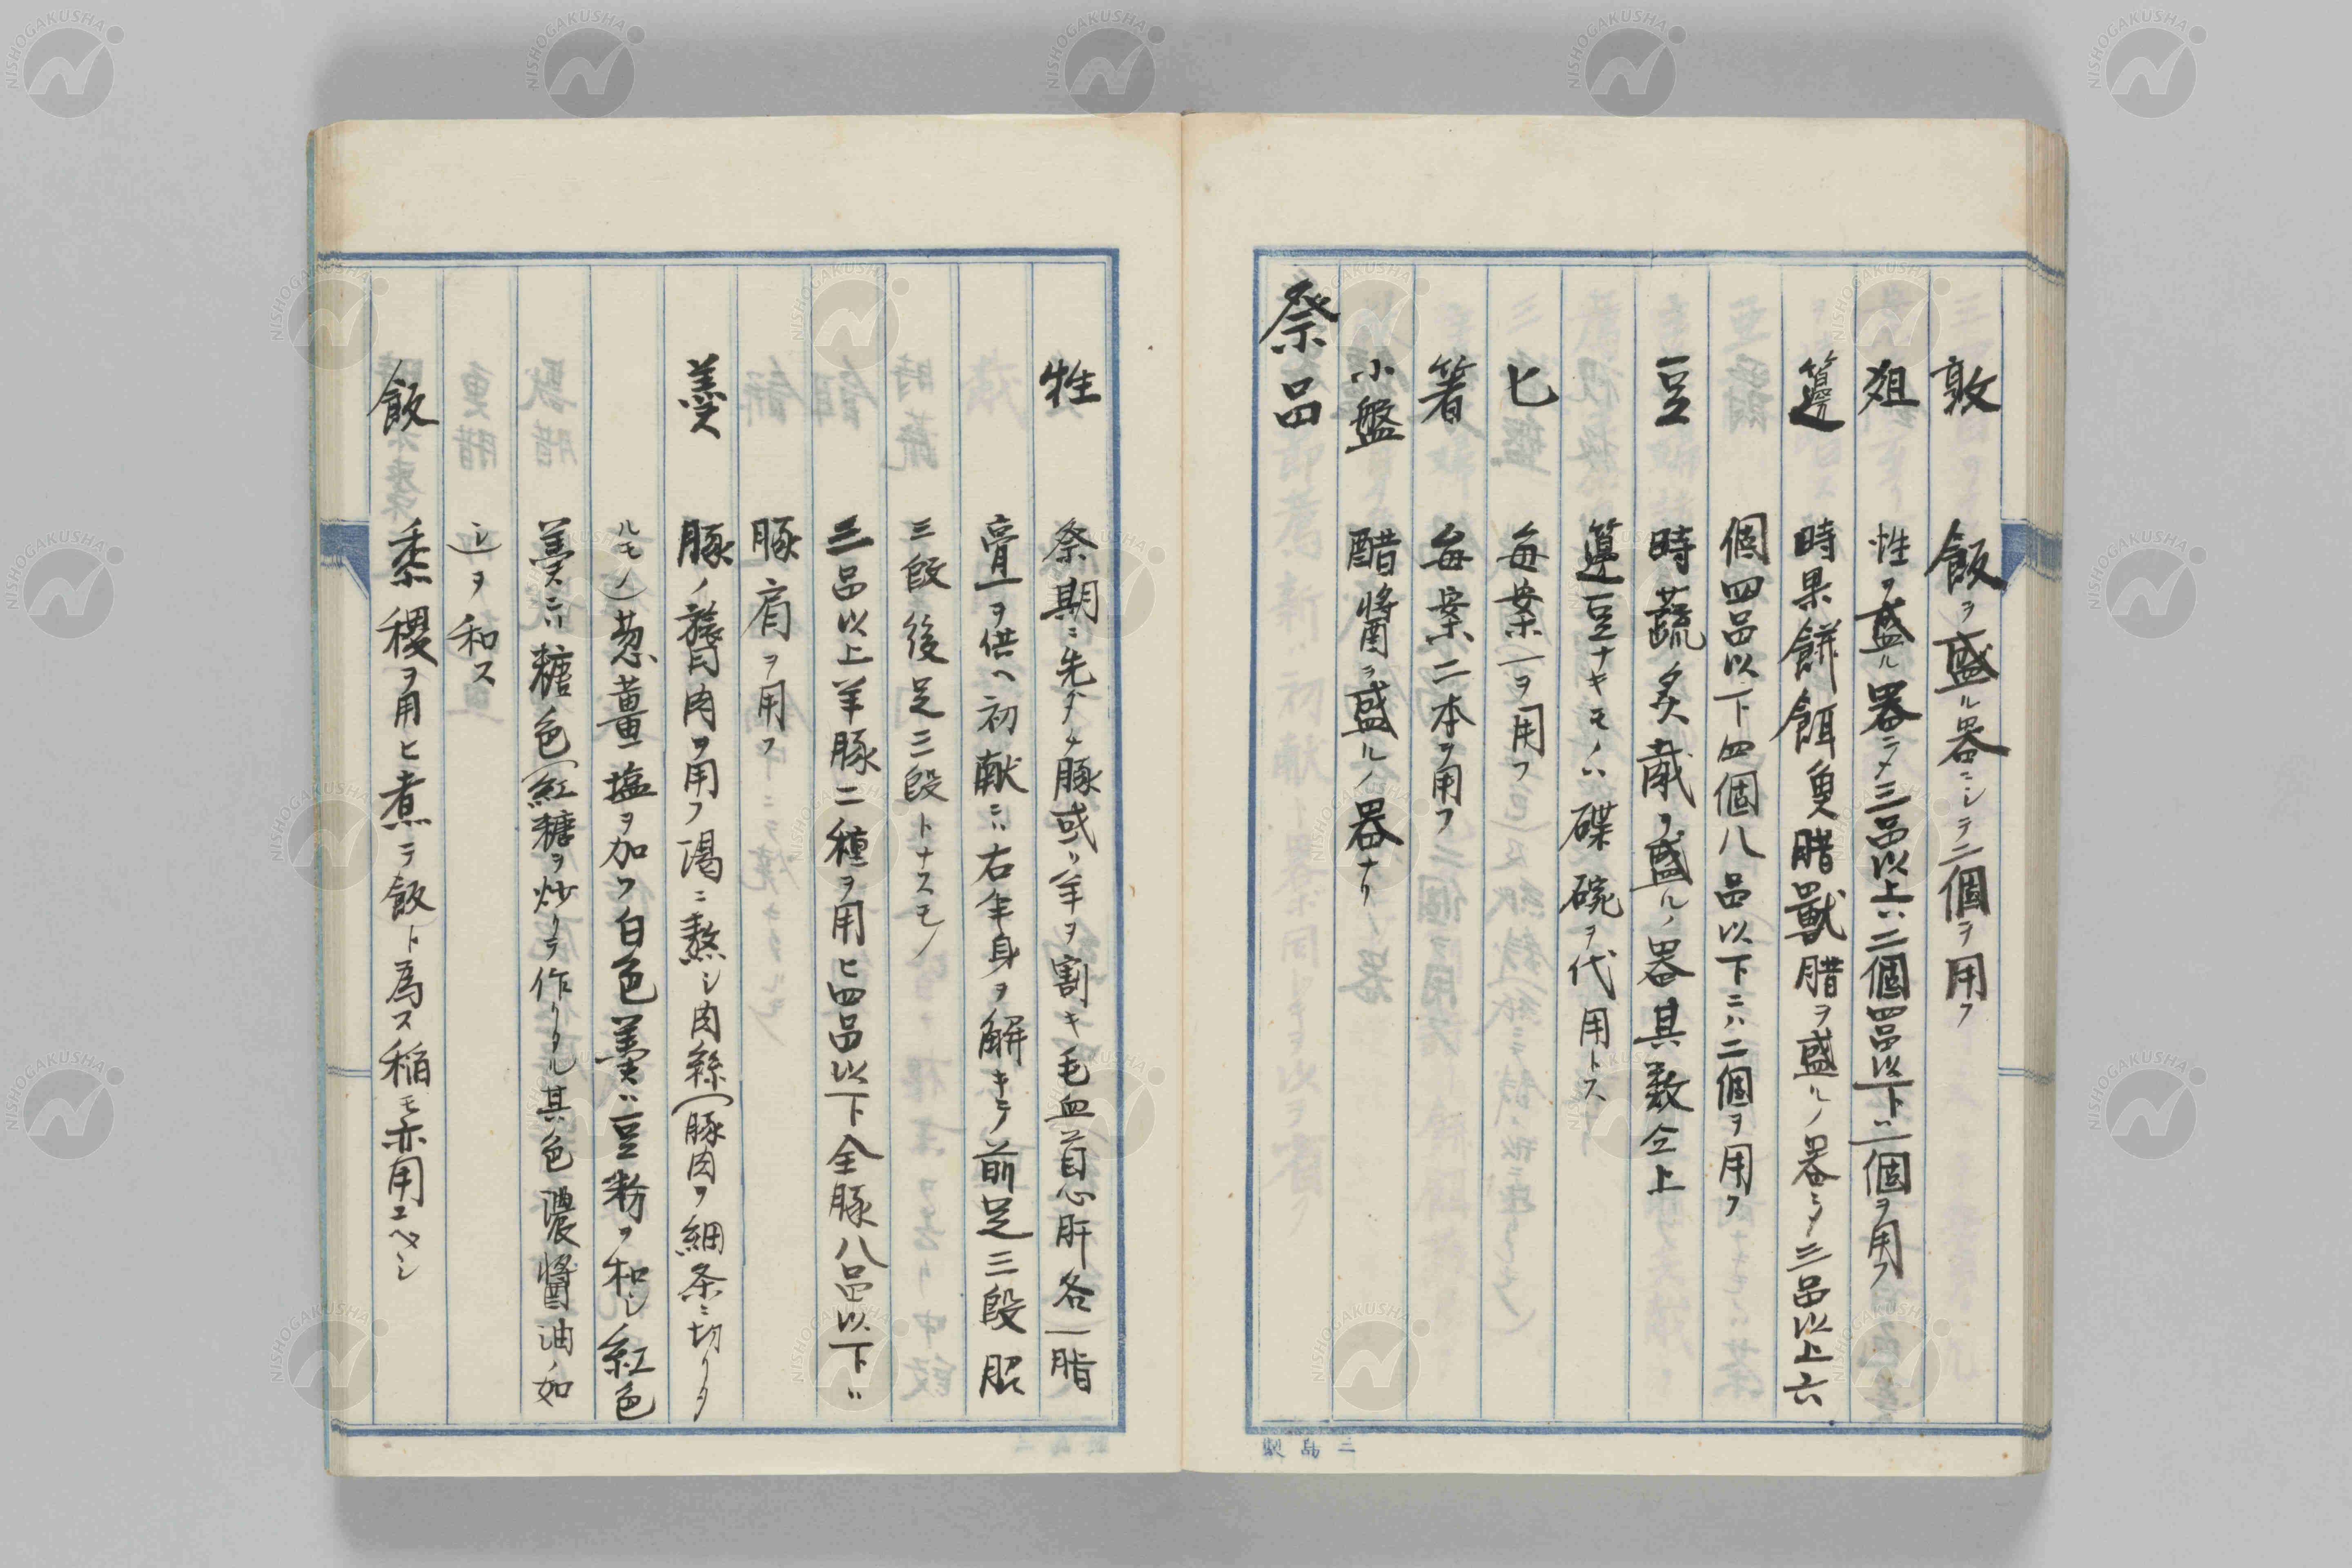 敦 飯ヲ盛ル器ニシテ二個ヲ用フ
俎 牲ヲ盛ル器ニシテ三品以上ハ二個四品以下ハ一個ヲ用フ
籩 時果餅餌魚腊獣腊ヲ盛ルノ器ニシテ三品以上六
個四品以下四個八品以下ニハ二個ヲ用フ
豆 時蔬炙胾ヲ盛ルノ器其数仝上
籩豆ナキモノハ碟碗ヲ代用トス
匕 毎案一ヲ用フ
箸 毎案二本ヲ用フ
小盤 醋醬ヲ盛ルノ器ナリ
祭品
牲 祭期ニ先ダチ豚或ハ羊ヲ割キ毛血首心肝各一脂
膏一ヲ供ヘ初献ニハ右半身ヲ解キテ前足三段
三段後足三段トナスモノ
三品以上羊豚二種ヲ用ヒ四品以下全豚八品以下ハ
豚肩ヲ用フ
羹 豚ノ膂肉ヲ用フ湯ニ熬シ肉絲(豚肉ヲ細条ニ切リタ
ルモノ)葱薑塩ヲ加フ白色羹ハ豆粉ヲ和シ紅色
羹ニハ糖色(紅糖ヲ炒リテ作リタル其色濃醬油ノ如
シ)ヲ和ス
飯 黍稷ヲ用ヒ煮テ飯ト為ス稲モ亦用ユベシ
三品製
NISHOGAKUSHA